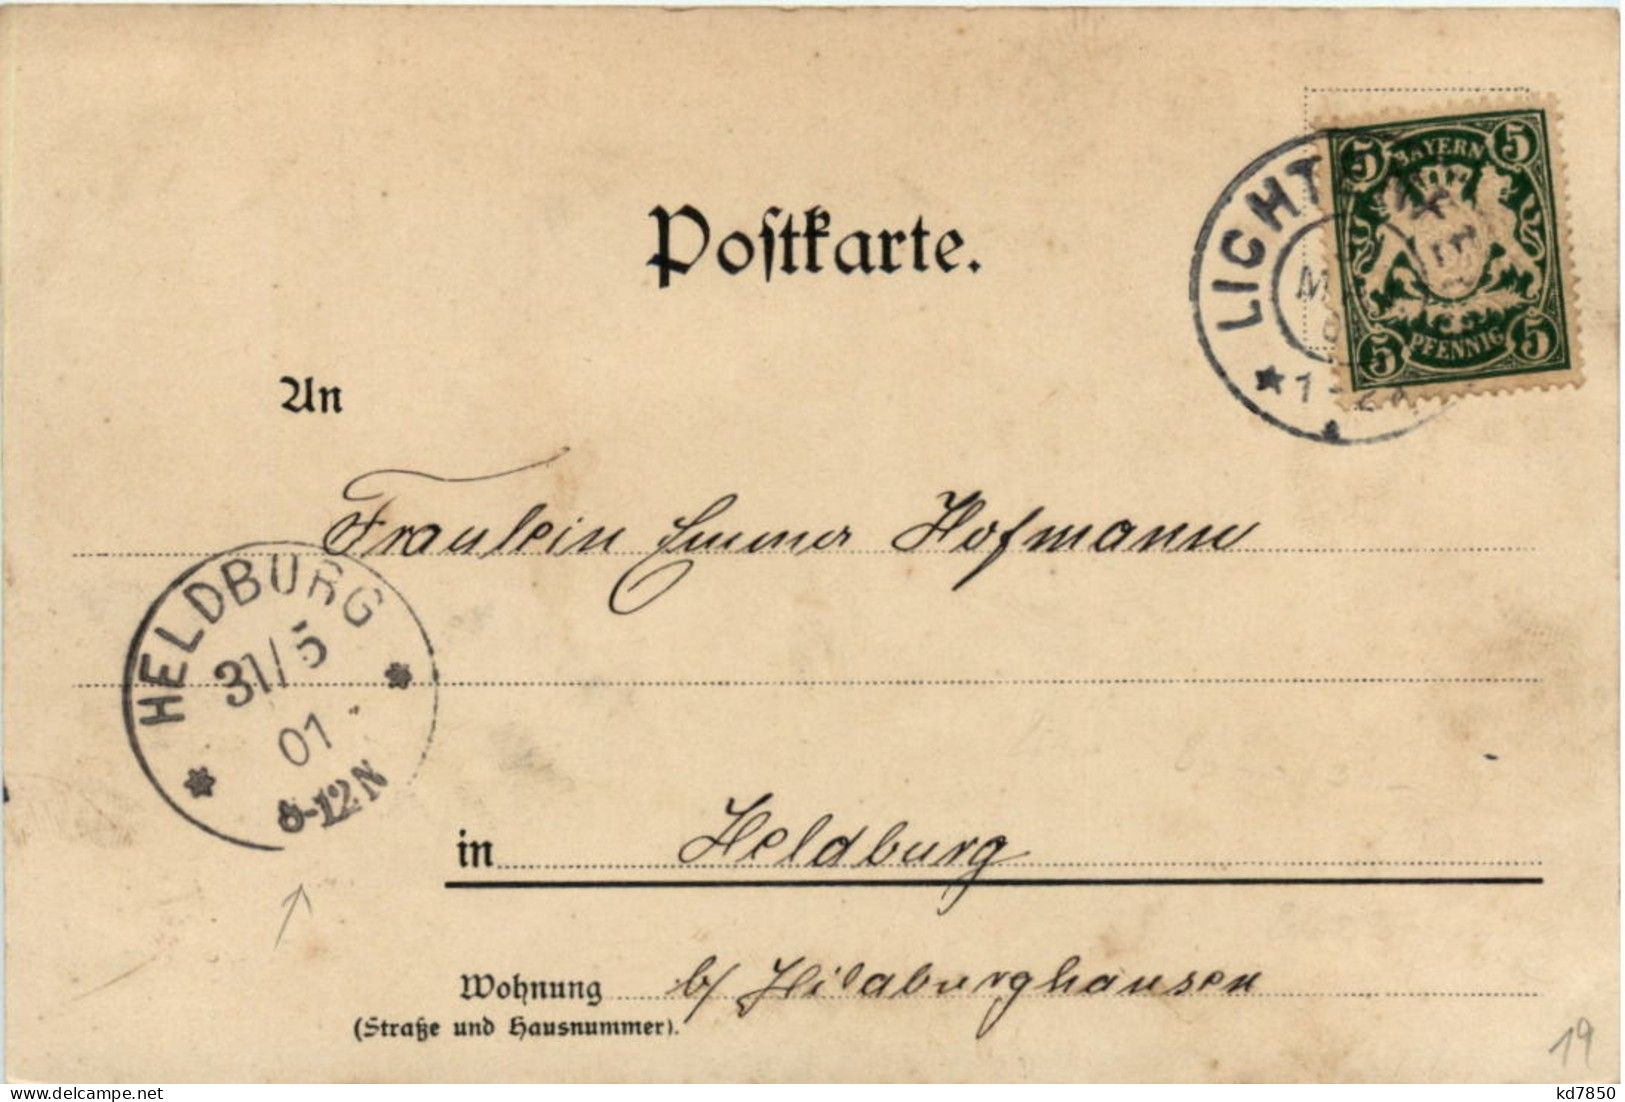 Postkarte.
5 BAYERN 5
5 PFENNIG 5
LICHT
1-2
An
Fräulein Emma Hofmann
HELDBURG
31/5
01
8-12N
in Heldburg
Wohnung b/ Hildburghausen
(Straße und Hausnummer).
19
www.delcampe.net
kd7850